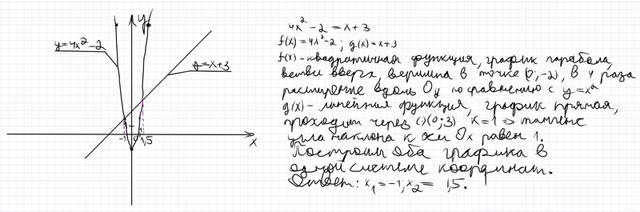 y
y=4x²-2
y=x+3
-1
1,5
x
4x²-2=x+3
f(x)=4x²-2; g(x)=x+3
f(x)-квадратичная функция, график парабола,
ветви вверх, вершина в точке (0,-2), в 4 раза
расширение вдоль Oy по сравнению с y=x²
g(x)- линейная функция, график прямая,
проходит через (0;3) k=1 => тангенс
угла наклона к оси Ox равен 1.
Построим оба графика в
одной системе координат.
Ответ: x₁=-1, x₂= 1,5.